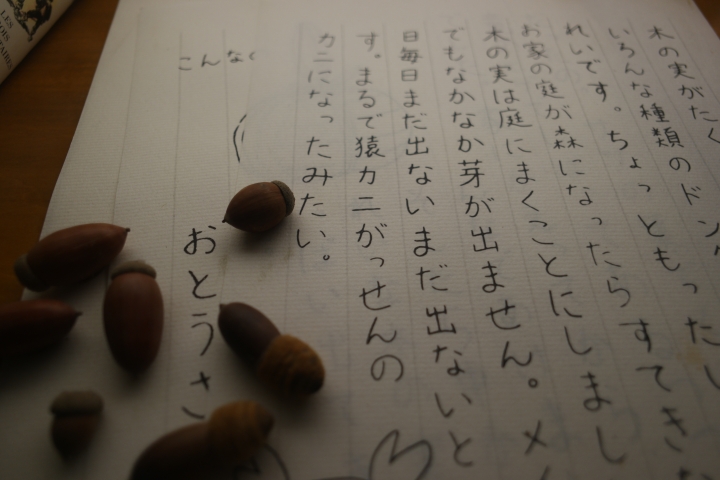 木の実がたく
いろんな種類のドン
れいです。ちょっともったい
お家の庭が森になったらすてきな
木の実は庭にまくことにしまし
でもなかなか芽が出ません。メ
日毎日まだ出ないまだ出ないと
す。まるで猿カニがっせんの
カニになったみたい。
こんな
おとうさ
LES